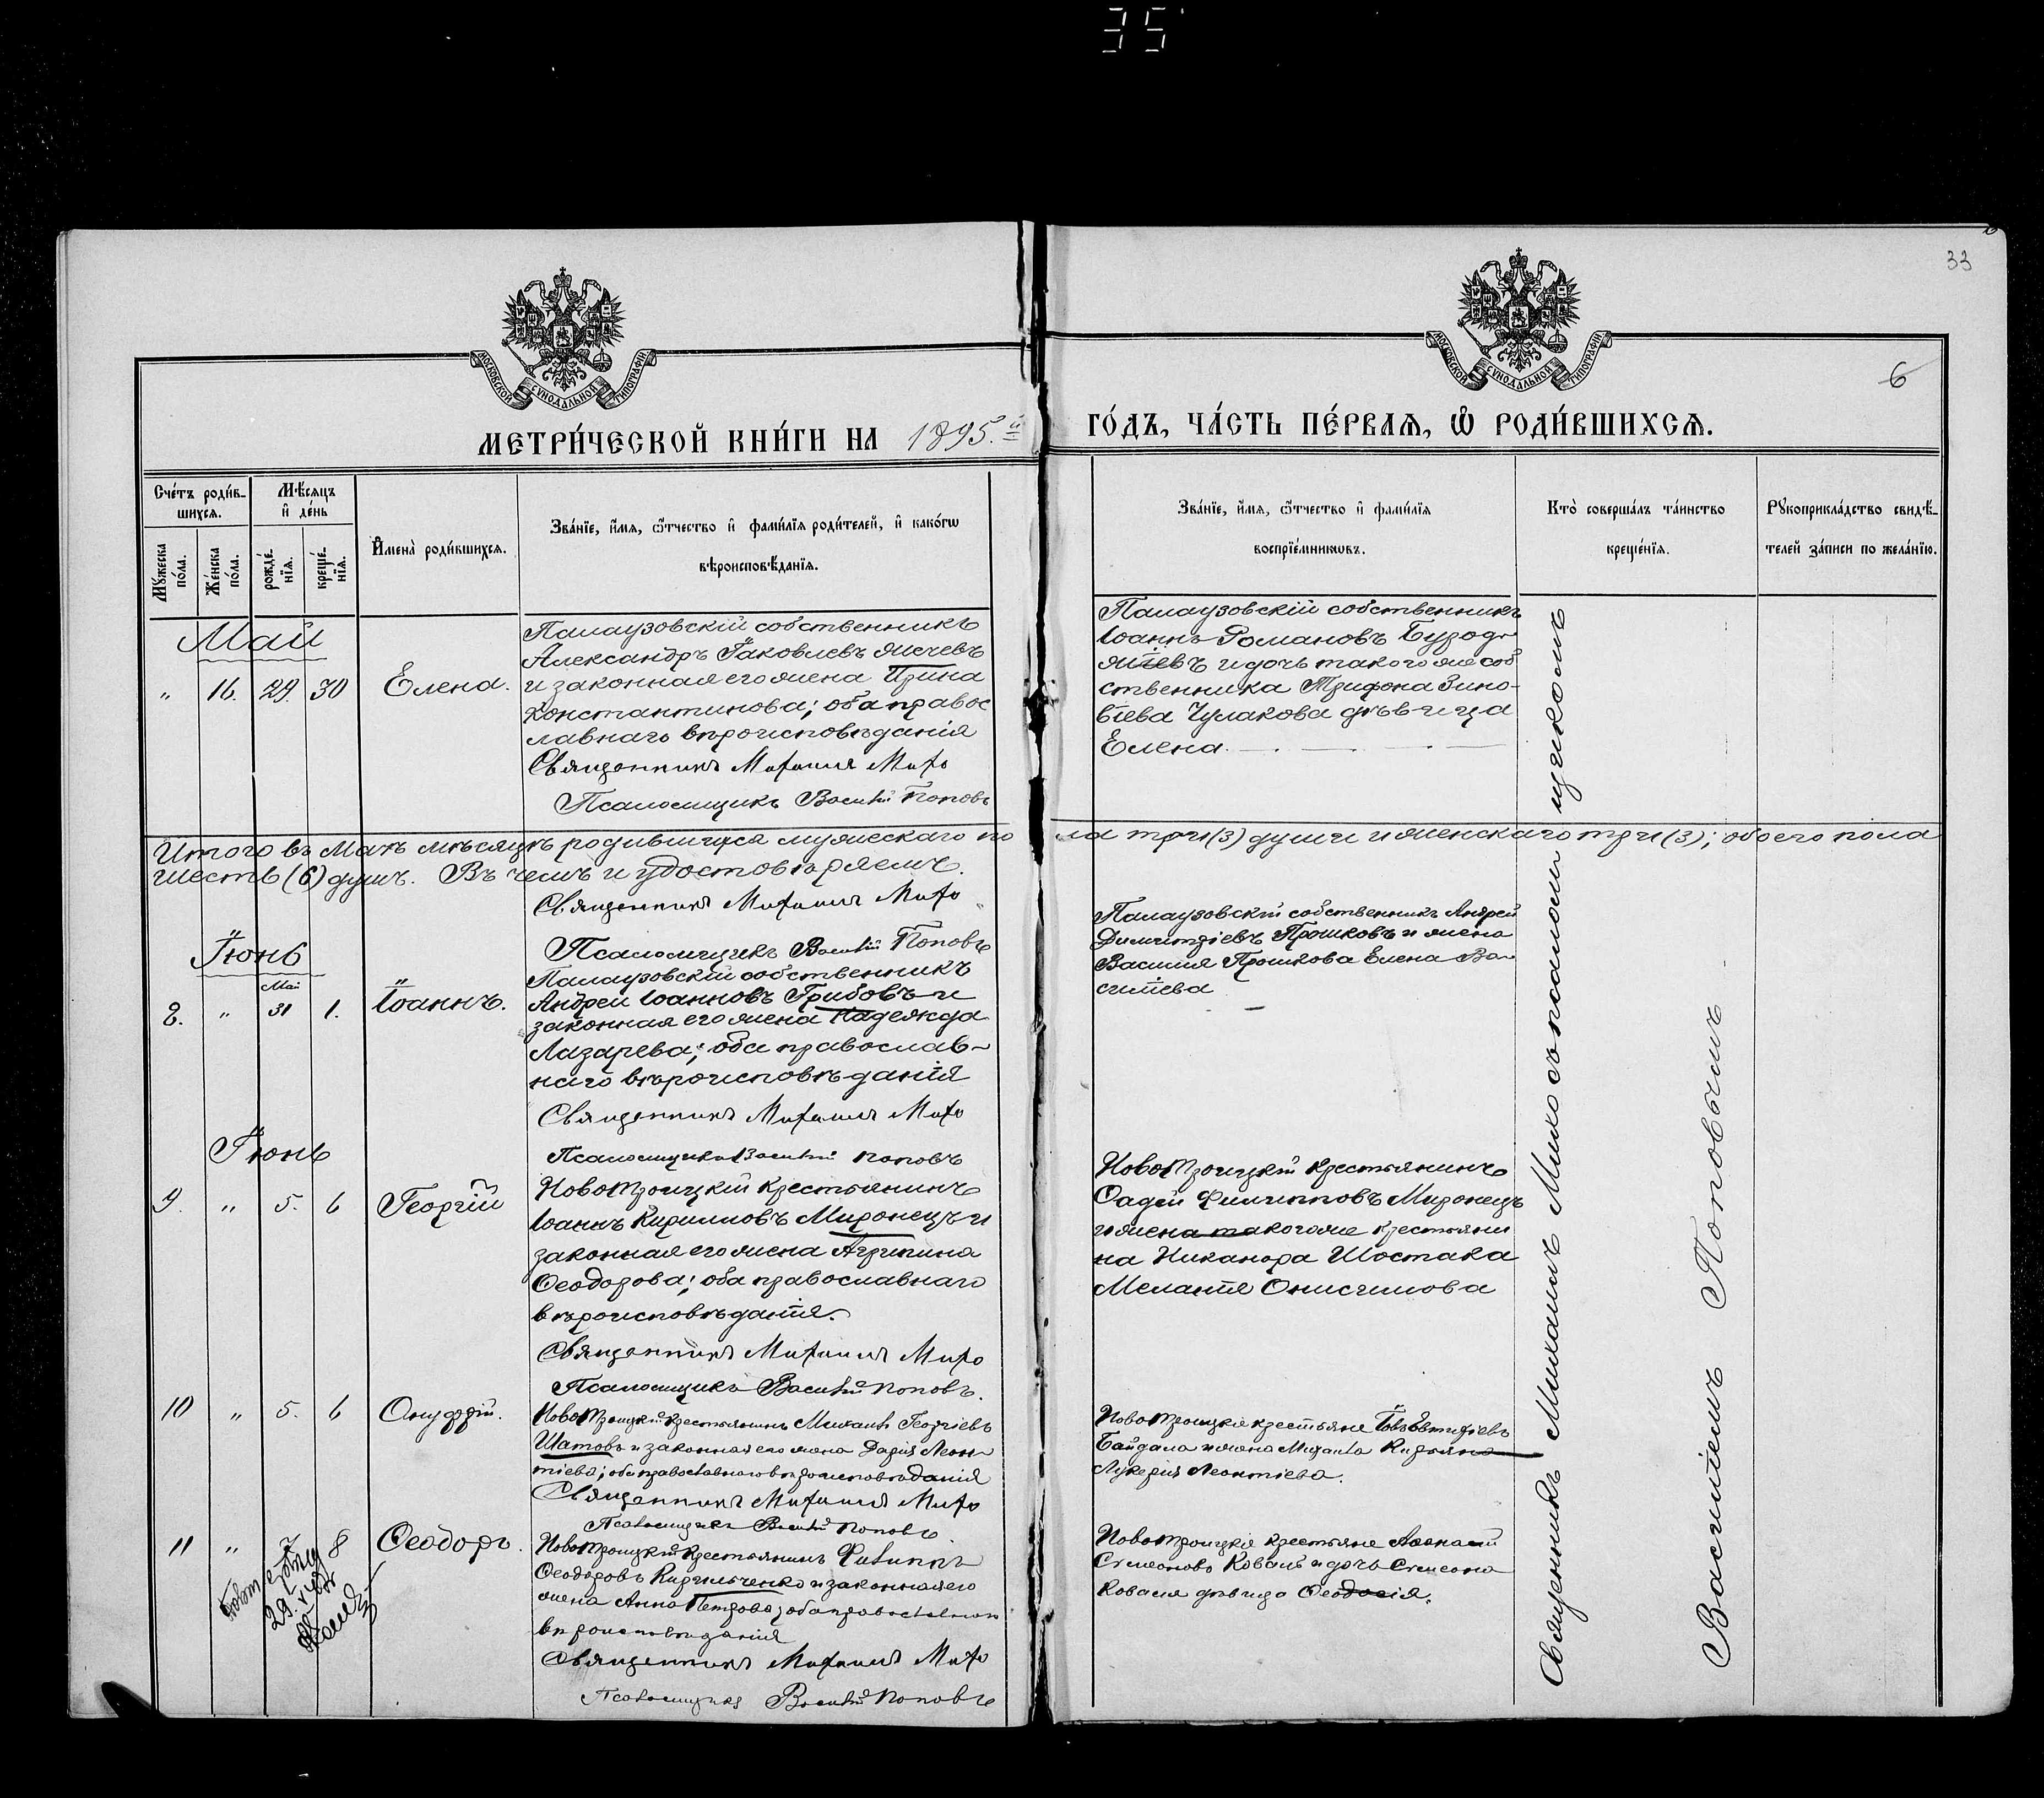 35
33
6
МОСКОВСКОЙ СѴНОДАЛЬНОЙ ТИПОГРАФІИ
МОСКОВСКОЙ СѴНОДАЛЬНОЙ ТИПОГРАФІИ
МЕТРИ́ЧЕСКОЙ КНИ́ГИ НА 1895.й
ГО́ДЪ, ЧА́СТЬ ПЕ́РВАЯ, Ѽ РОДИ́ВШИХСЯ.
Сче́тъ роди́в-
шихся.
Мѣ́сяцъ
и҆ де́нь
Мꙋ́жеска
по́ла.
Же́нска
по́ла.
рожде́-
нїя.
креще́-
нїя.
И҆мена̀ роди́вшихся.
Зва́нїе, и҆́мя, ѻ҆́тчество и҆ фами́лїя роди́телей, и҆ како́гѡ
вѣроисповѣ́данїя.
Зва́нїе, и҆́мя, ѻ҆́тчество и҆ фами́лїя
воспрїе́мникѡвъ.
Кто̀ соверша́лъ та́инство
креще́нїя.
Рꙋкоприкла́дство свидѣ́-
телей за́писи по жела́нїю.
Май
" 16. 29. 30 Елена.
Палаузовскій собственникъ
Александръ Яковлевъ
и законная его жена Ирина
Константинова; оба правос
лавнаго вѣроисповѣданія
Священникъ Михаилъ
Псаломщикъ Василій Поповъ
Палаузовскій собственникъ
Іоаннъ Романовъ
и дочь такого же соб
ственника Трифона Зино-
віева Чулакова дѣвица
Елена.
Итого въ Маѣ мѣсяцѣ родившихся мужескаго по ла три (3) души и женскаго три (3); обоего пола
шесть (6) душъ. Въ чемъ и удостовѣряемъ.
Священникъ Михаилъ
Псаломщикъ Василій Поповъ
Іюнь
Май
8. " 31 1. Іоаннъ.
Палаузовскій собственникъ
Андрей Іоанновъ Грибовъ и
законная его жена Надежда
Лазарева; оба православ-
наго вѣроисповѣданія
Священникъ Михаилъ
Псаломщикъ Василій Поповъ
Палаузовскій собственникъ Андрей
Димитріевъ Прошковъ и жена
Василия Прошкова Елена Ва-
силіева
Іюнь
9. " 5. 6 Георгій
Новотроицкій крестьянинъ
Іоаннъ Кирилловъ Миронецъ и
законная его жена Агрипина
Ѳеодорова; оба православнаго
вѣроисповѣданія.
Священникъ Михаилъ
Псаломщикъ Василій Поповъ.
Новотроицкій крестьянинъ
Фадей Филипповъ Миронецъ
и жена такого же крестьяни
на Никанора Шостака
Меланія Онисимова
10 " 5. 6 Онуфрій.
Новотроицкій крестьянинъ Михаилъ Георгіевъ
Шатовъ и законная его жена Дарія Леон
тіева; оба православнаго вѣроисповѣданія
Священникъ Михаилъ
Псаломщикъ Василій Поповъ
Новотроицкіе крестьяне
Байдала и жена Михаила
Лукерія Леонтіева.
11 " 7 8 Ѳеодоръ.
Новотроицкій крестьянинъ Филиппъ
Ѳеодоровъ Кирильченко и законная его
жена Анна Петрова; оба православнаго
вѣроисповѣданія
Священникъ Михаилъ
Псаломщикъ Василій Поповъ
Новотроицкіе крестьяне Аѳанасій
Симеоновъ Коваль и дочь Симеона
Коваля дѣвица Ѳеодосія.
Священникъ Михаилъ съ псаломщикомъ
Василіемъ Поповымъ